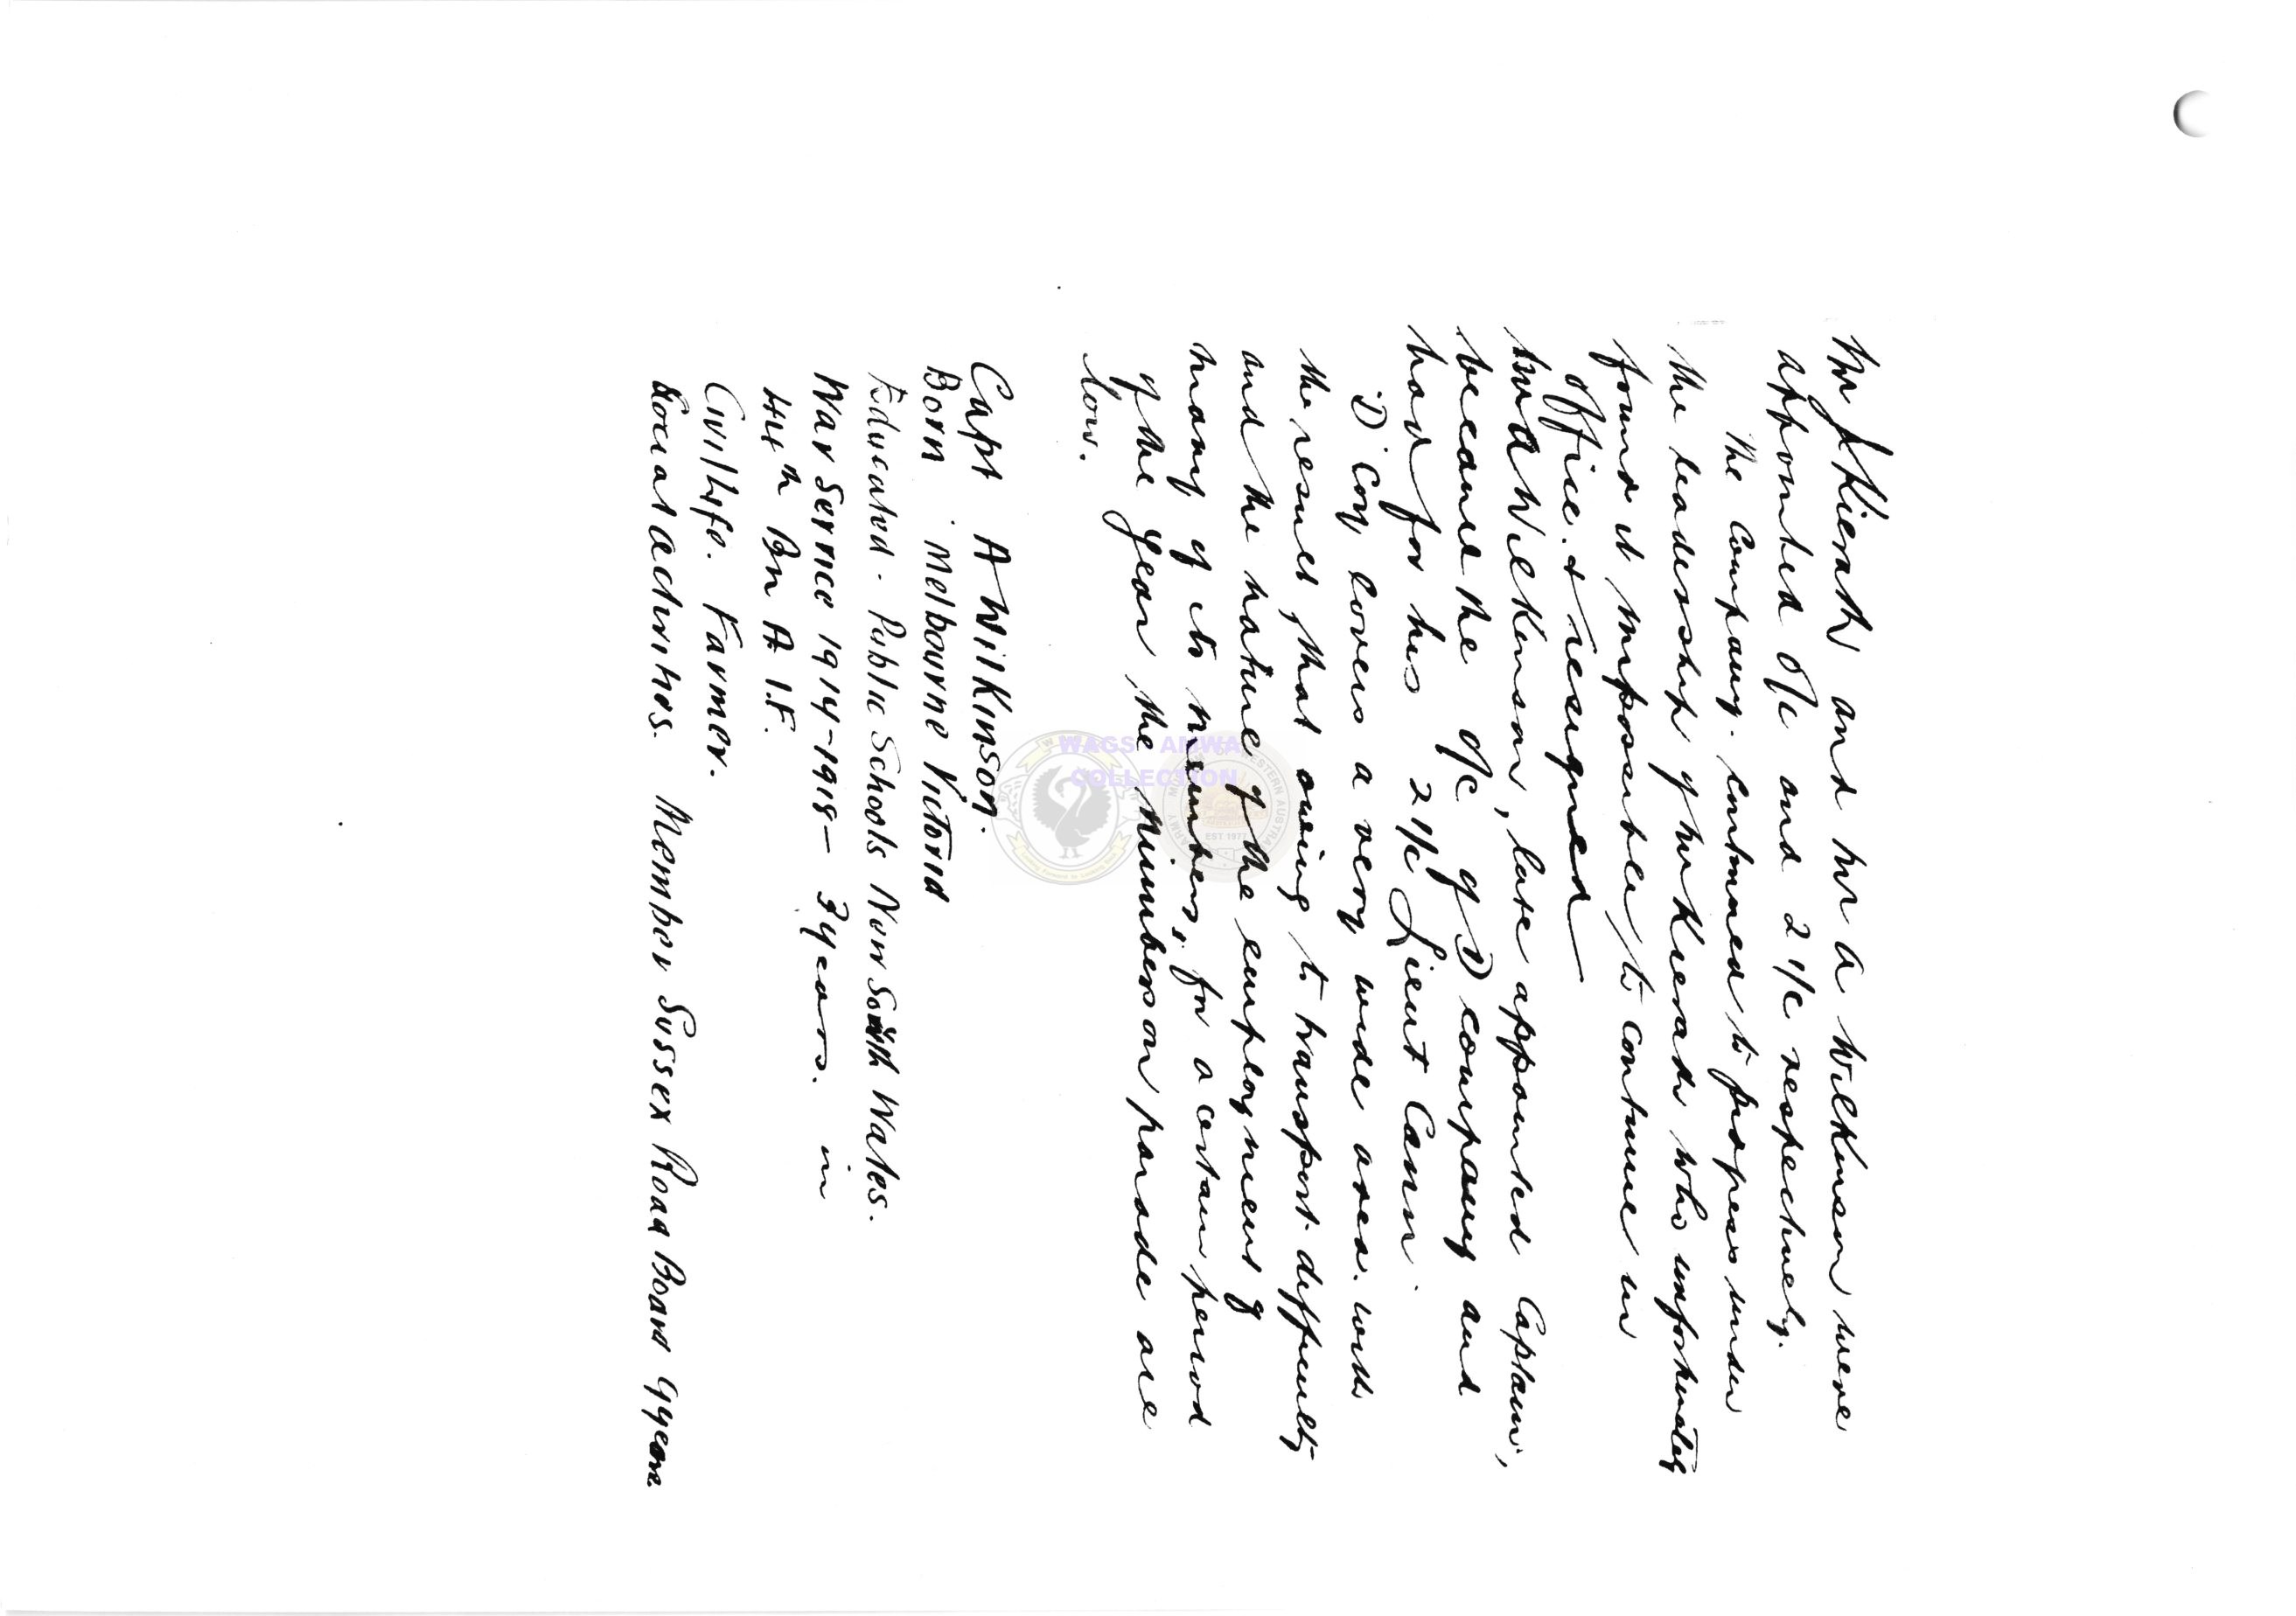 Mr J Kierath and Mr A Wilkinson were
appointed O/C and 2 I/C respectively.
The Company continued to progress under
the leadership of Mr Kierath who unfortunately
found it impossible to continue in
office & resigned
Mr A Wilkinson, later appointed Captain,
became the O/C of D company and
had for his 2 I/C Lieut Cann.
D Coy covers a very wide area with
the result that owing to transport difficulty
and the nature of the employment of
many of its members, for a certain period
of the year the numbers on parade are
low.
Capt A Wilkinson.
Born Melbourne Victoria
Educated. Public Schools New South Wales.
War Service 1914-1918 - 3 years. in
44th Bn A.I.F.
Civil Life. Farmer.
Local activities. Member Sussex Road Board 9 years
WAGS AMWA
COLLECTION
WESTERN AUSTRALIA
ARMY
EST 1977